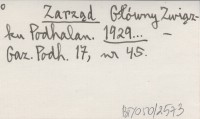 Zarząd Główny Związ-
ku Podhalan. 1929... –
Gaz. Podh. 17, nr 45.